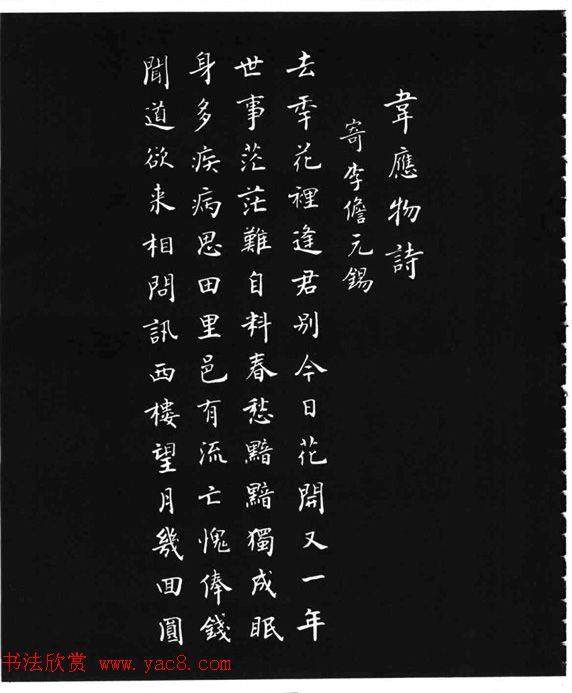 韋應物詩
寄李儋元錫
去秊花裡逢君別今日花開又一年
世事茫茫難自料春愁黯黯獨成眠
身多疾病思田里邑有流亡愧俸錢
聞道欲来相問訊西樓望月幾回圓
书法欣赏 www.yac8.com